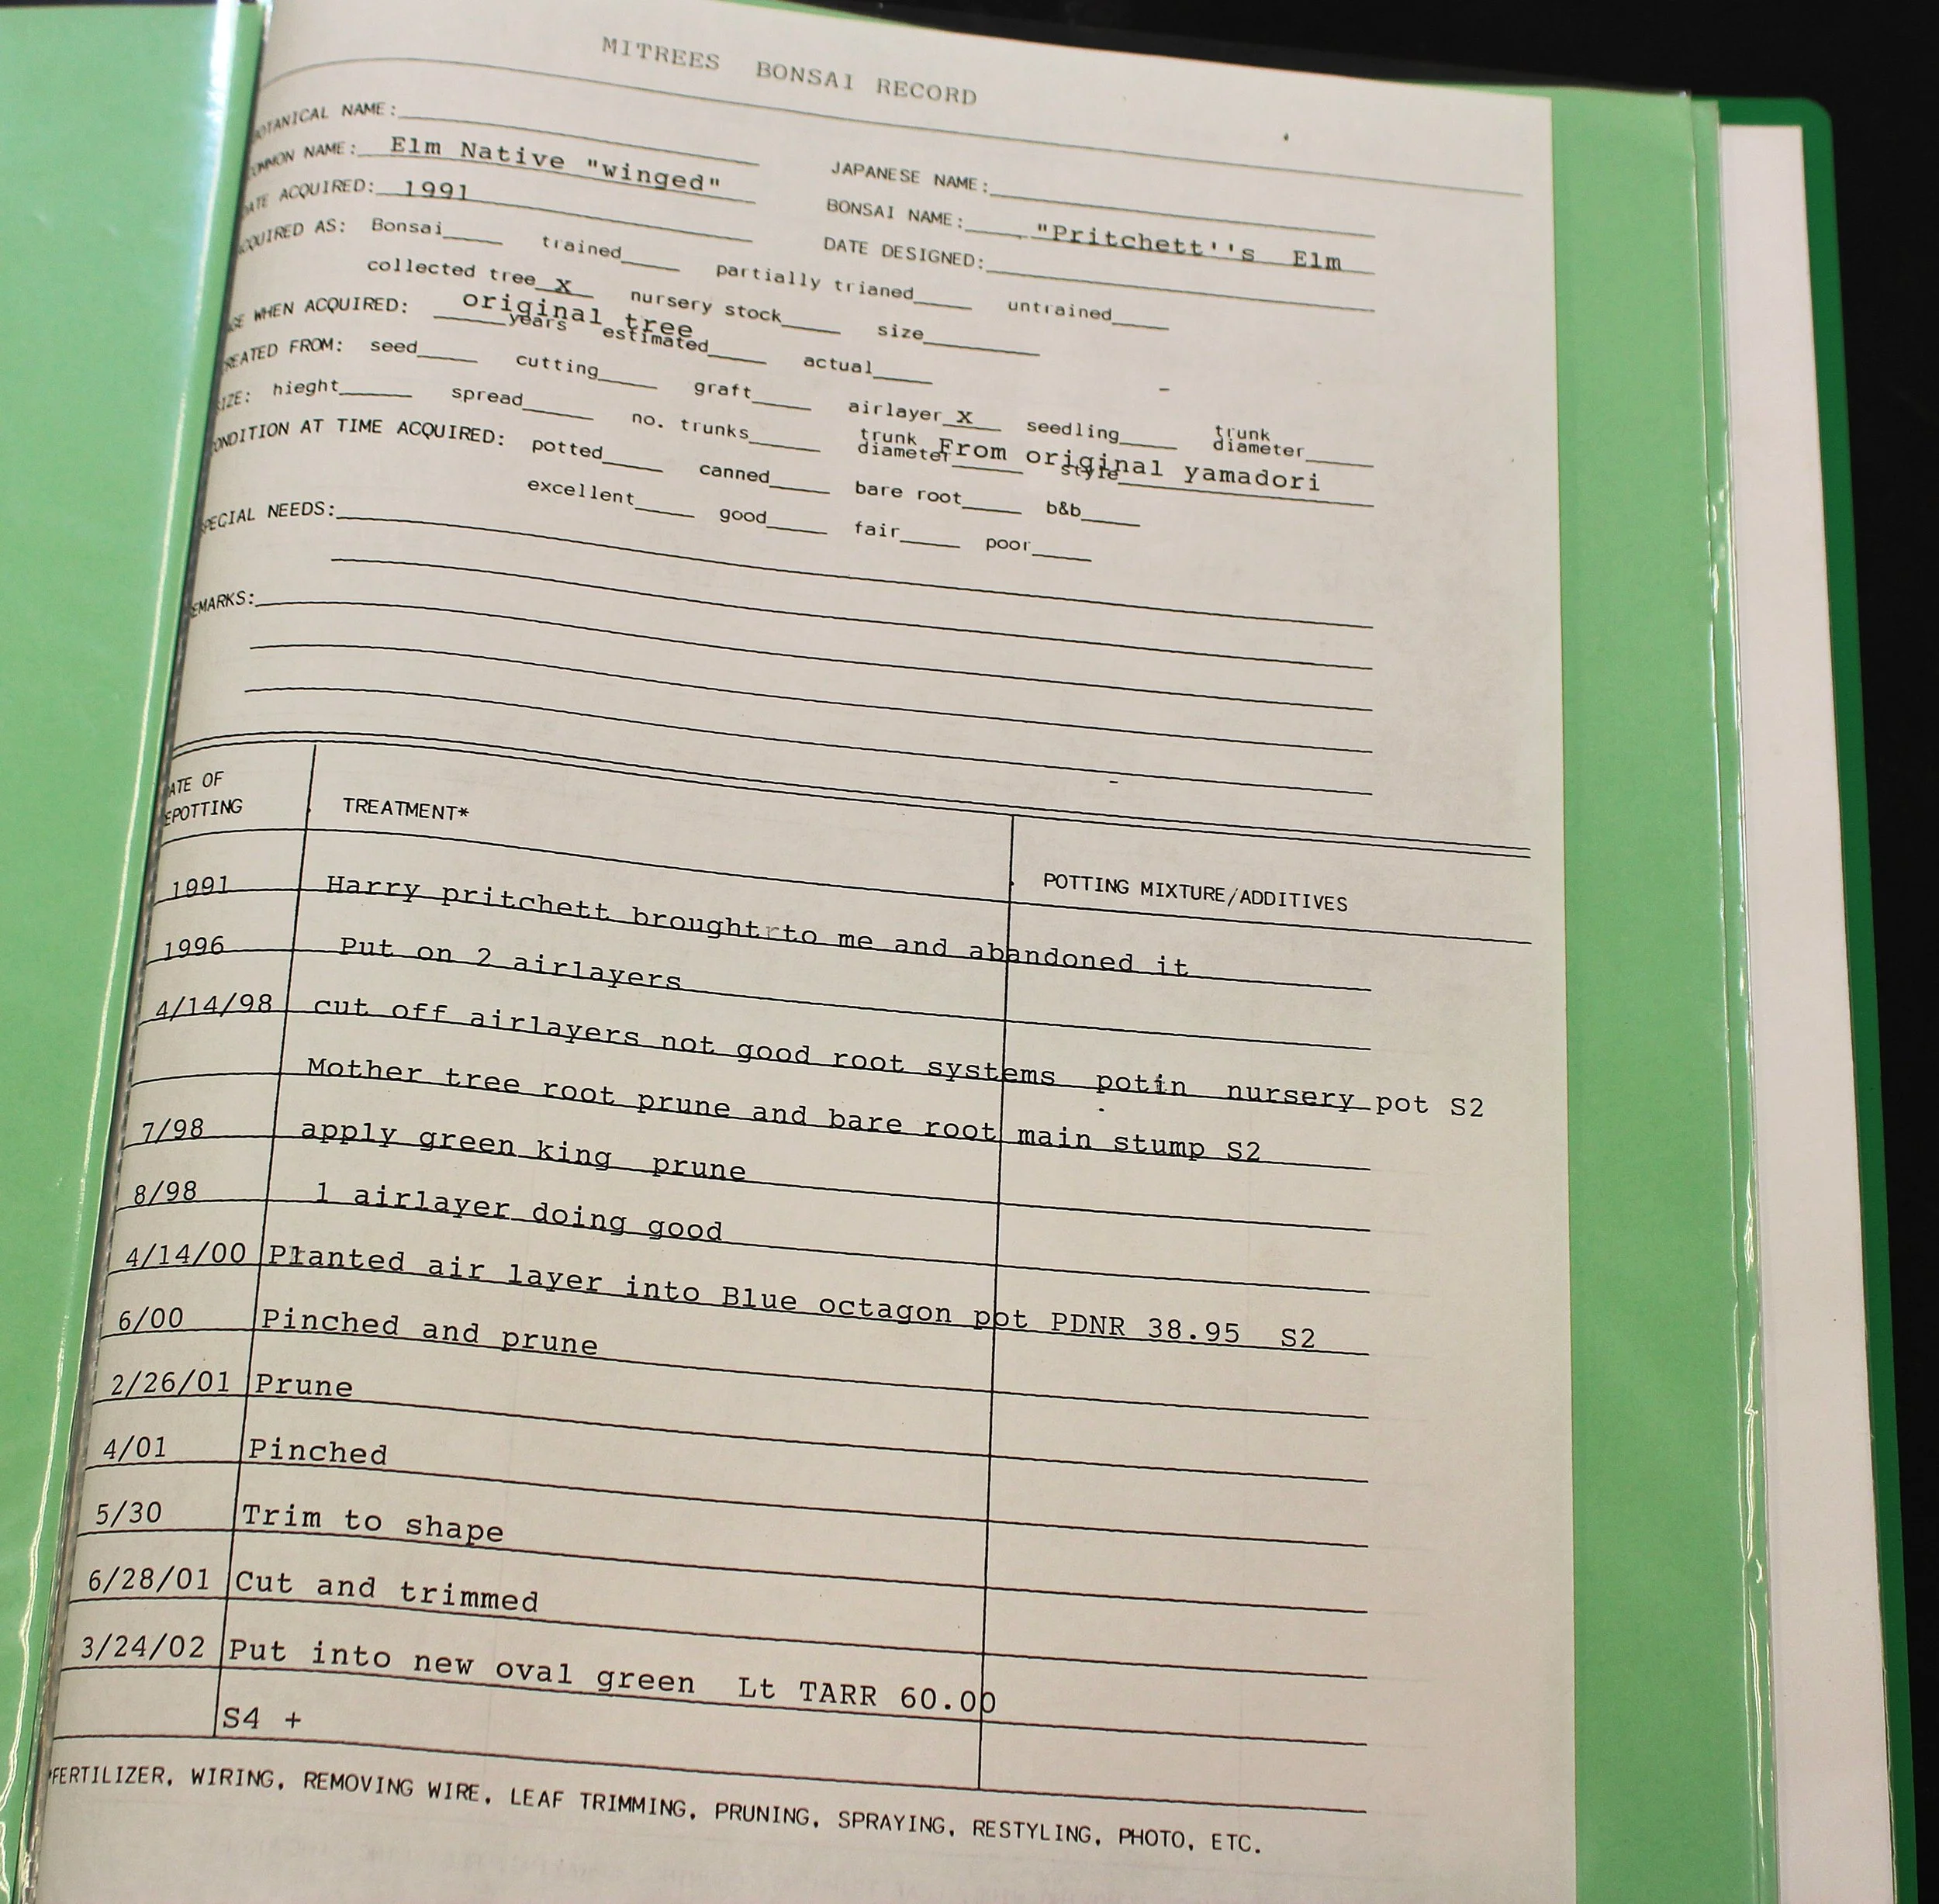 MITREES BONSAI RECORD
OTANICAL NAME:
JAPANESE NAME:
OMMON NAME: Elm Native "winged"
BONSAI NAME: "Pritchett''s Elm
ATE ACQUIRED: 1991
DATE DESIGNED:
CQUIRED AS: Bonsai trained partially trianed untrained
collected tree X nursery stock size
GE WHEN ACQUIRED: original tree
years estimated actual
REATED FROM: seed cutting graft airlayer X seedling trunk diameter
IZE: hieght spread no. trunks trunk diameter style
From original yamadori
ONDITION AT TIME ACQUIRED: potted canned bare root b&b
excellent good fair poor
PECIAL NEEDS:
EMARKS:
ATE OF
EPOTTING TREATMENT* POTTING MIXTURE/ADDITIVES
1991 Harry pritchett brought to me and abandoned it
1996 Put on 2 airlayers
4/14/98 cut off airlayers not good root systems potin nursery pot S2
Mother tree root prune and bare root main stump S2
7/98 apply green king prune
8/98 1 airlayer doing good
4/14/00 Planted air layer into Blue octagon pot PDNR 38.95 S2
6/00 Pinched and prune
2/26/01 Prune
4/01 Pinched
5/30 Trim to shape
6/28/01 Cut and trimmed
3/24/02 Put into new oval green Lt TARR 60.00
S4 +
*FERTILIZER, WIRING, REMOVING WIRE, LEAF TRIMMING, PRUNING, SPRAYING, RESTYLING, PHOTO, ETC.